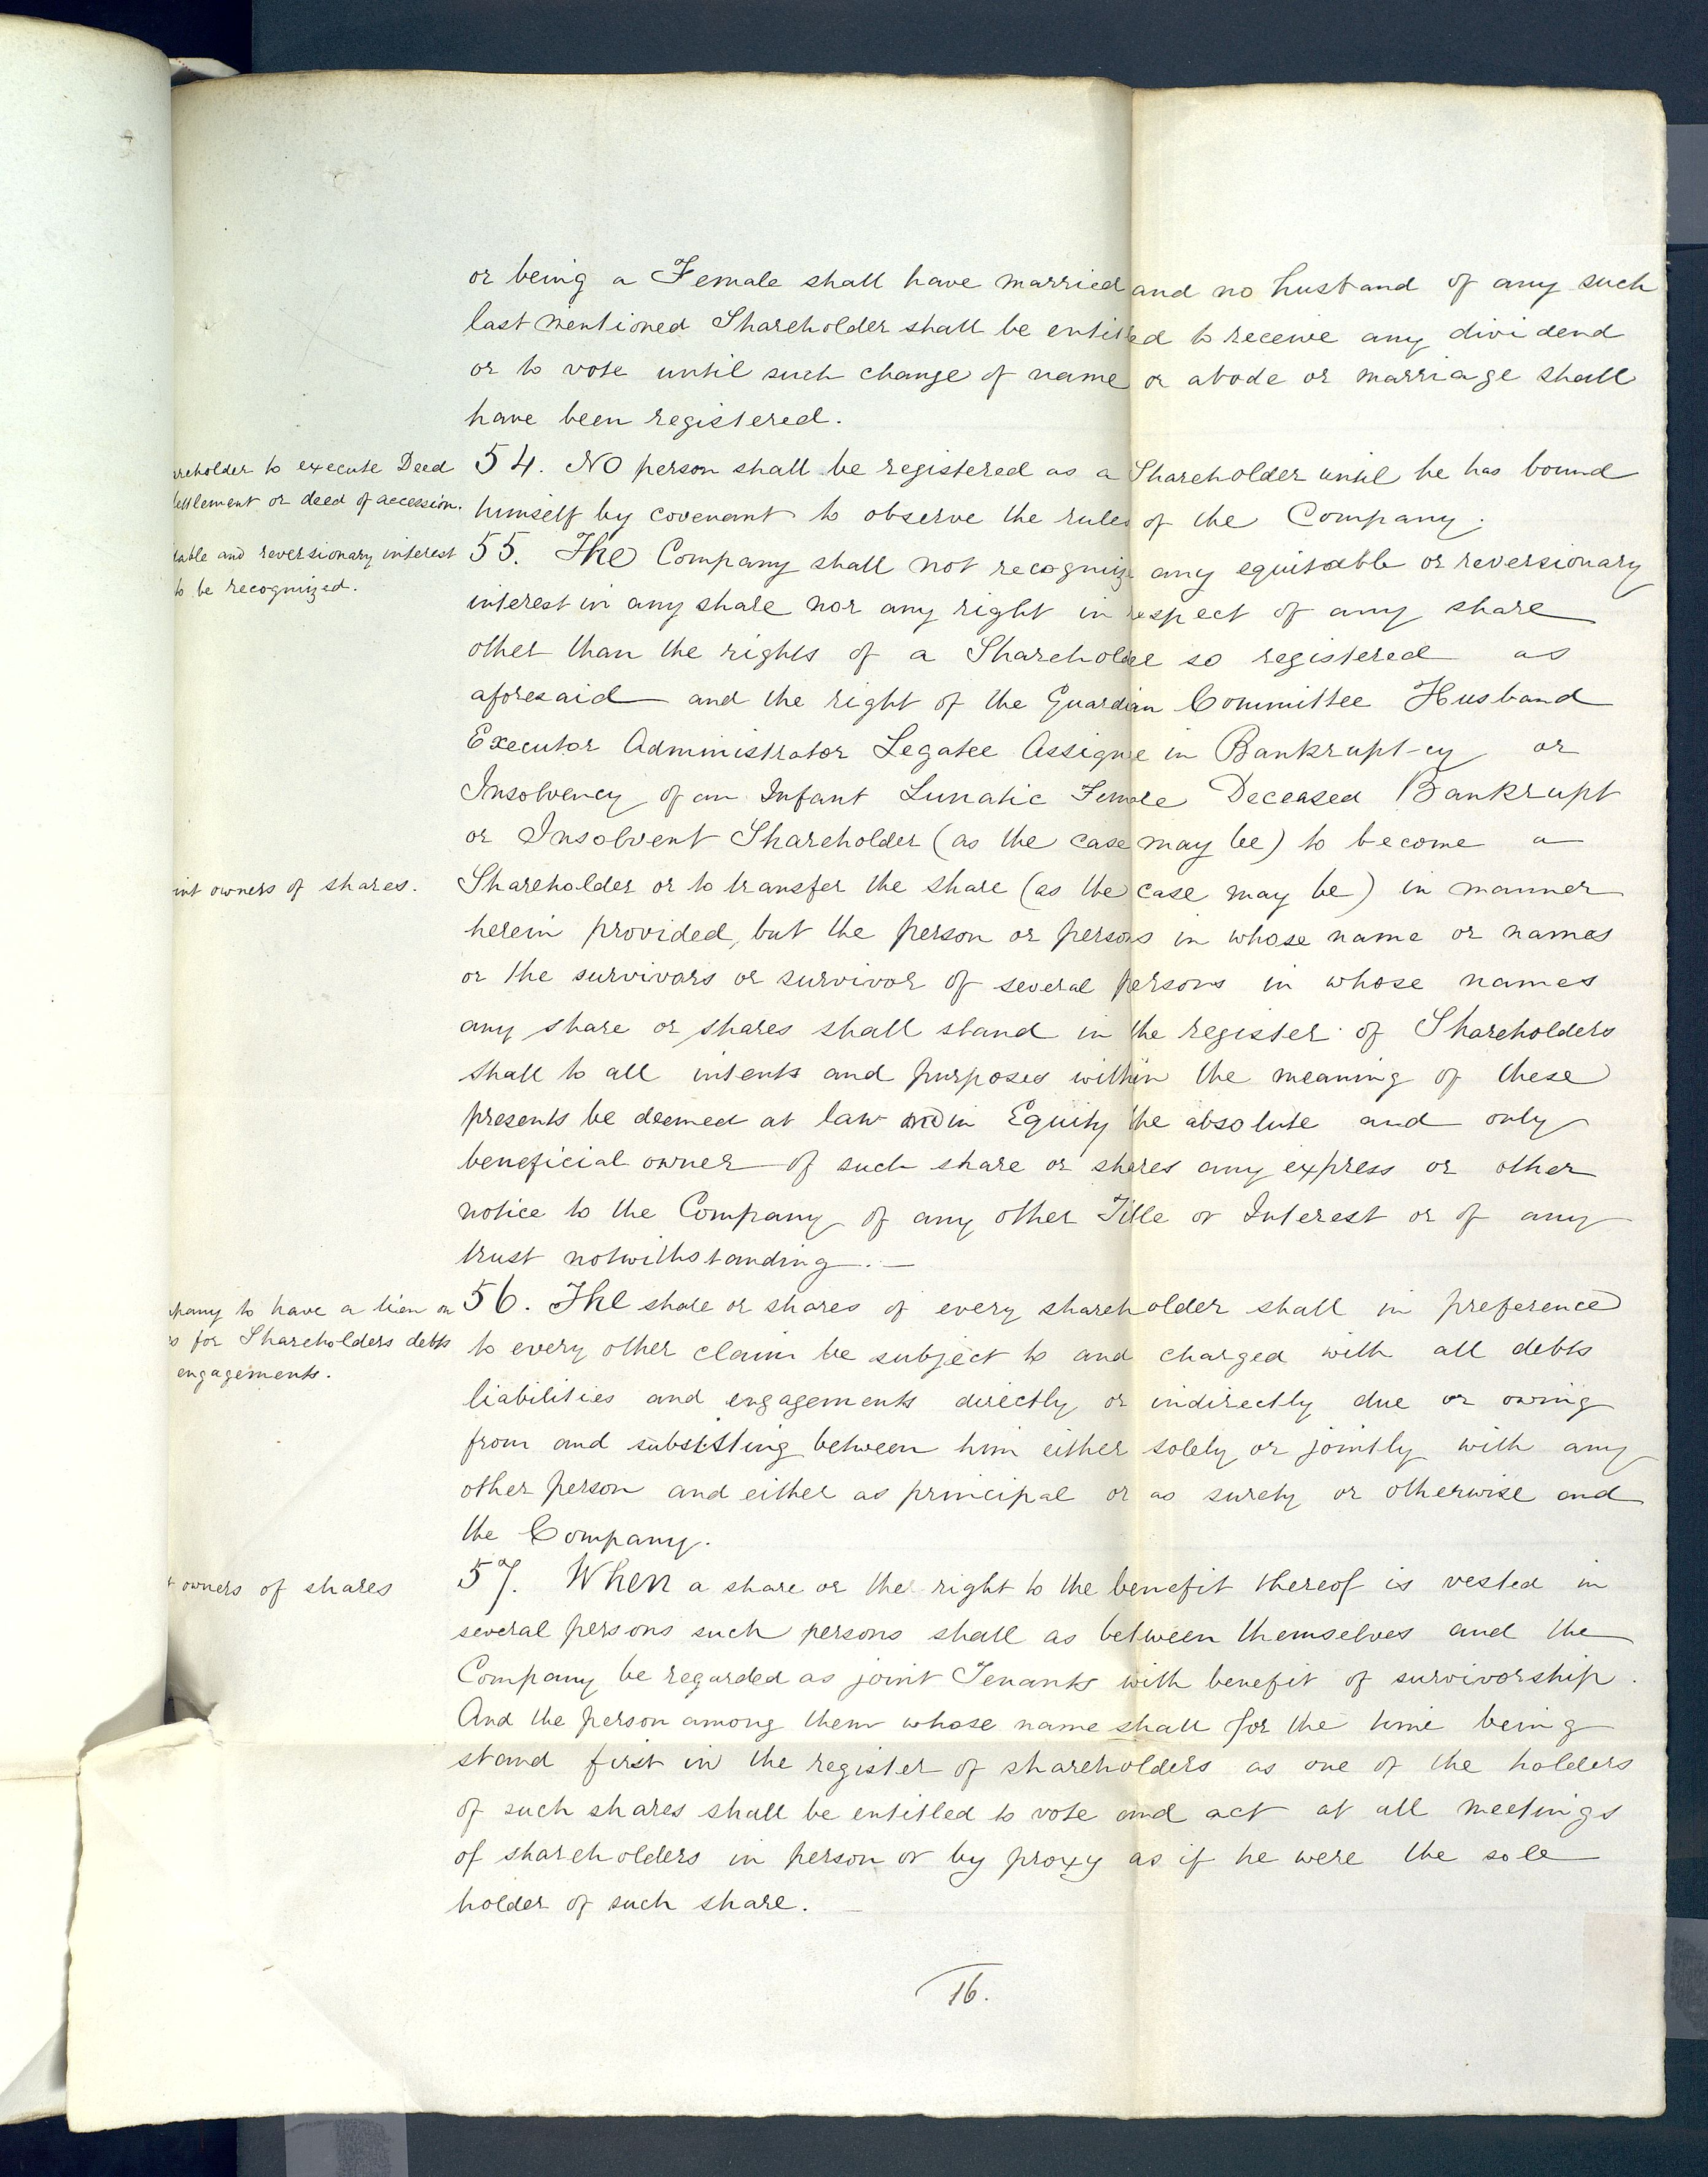 or being a Female shall have married and no husband of any such
last mentioned Shareholder shall be entitled to receive any dividend
or to vote until such change of name or abode or marriage shall
have been registered.
areholder to execute Deed
settlement or deed of accession.
54. No person shall be registered as a Shareholder until he has bound
himself by covenant to observe the rules of the Company.
table and reversionary interest
to be recognized.
55. The Company shall not recognize any equitable or reversionary
interest in any share nor any right in respect of any share
other than the rights of a Shareholder so registered as
aforesaid and the right of the Guardian Committee Husband
Executor Administrator Legatee Assignee in Bankrupt-cy or
Insolvency of an Infant Lunatic Female Deceased Bankrupt
or Insolvent Shareholder (as the case may be) to become a
int owners of shares.
Shareholder or to transfer the share (as the case may be) in manner
herein provided, but the person or persons in whose name or names
or the survivors or survivor of several persons in whose names
any share or shares shall stand in the register of Shareholders
shall to all intents and purposes within the meaning of these
presents be deemed at law and in Equity the absolute and only
beneficial owner of such share or shares any express or other
notice to the Company of any other Title or Interest or of any
trust notwithstanding.
mpany to have a lien on
s for Shareholders debts
engagements.
56. The share or shares of every shareholder shall in preference
to every other claim be subject to and charged with all debts
liabilities and engagements directly or indirectly due or owing
from and subsisting between him either solely or jointly with any
other person and either as principal or as surety or otherwise and
the Company.
t owners of shares
57. When a share or the right to the benefit thereof is vested in
several persons such persons shall as between themselves and the
Company be regarded as joint Tenants with benefit of survivorship.
And the person among them whose name shall for the time being
stand first in the register of shareholders as one of the holders
of such shares shall be entitled to vote and act at all meetings
of shareholders in person or by proxy as if he were the sole
holder of such share.
16.